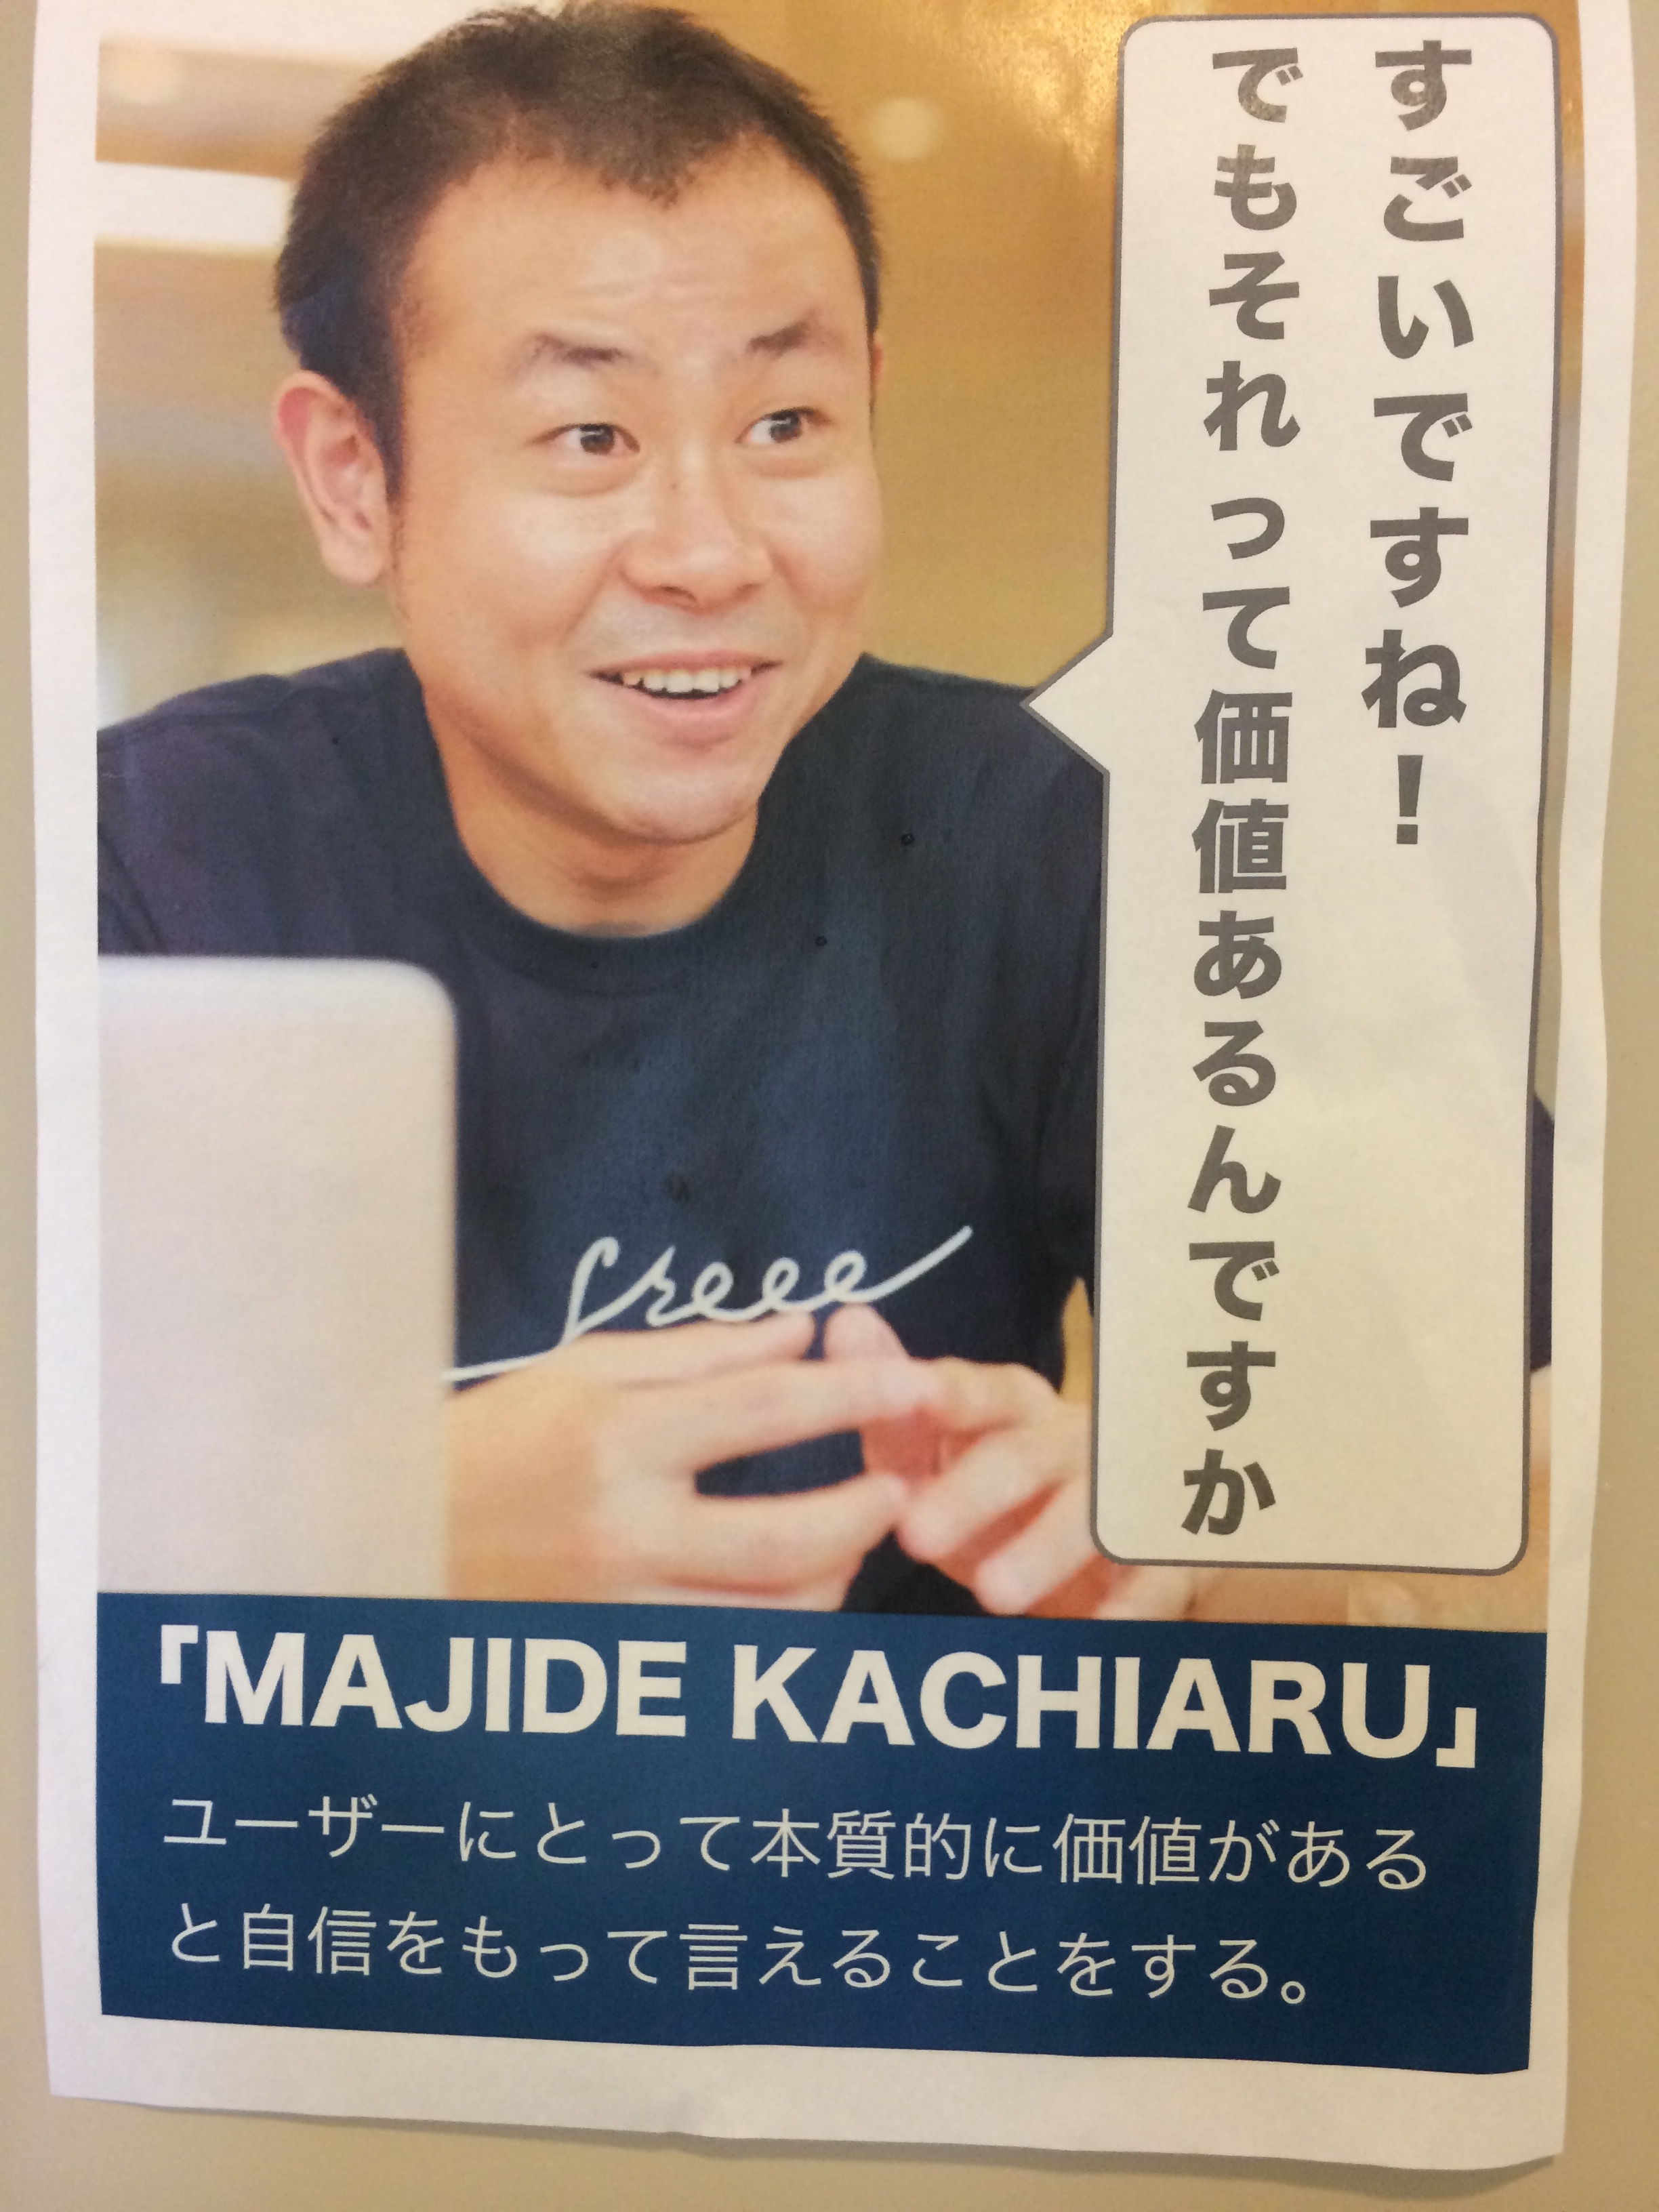 すごいですね！
でもそれって価値あるんですか
freee
「MAJIDE KACHIARU」
ユーザーにとって本質的に価値がある
と自信をもって言えることをする。